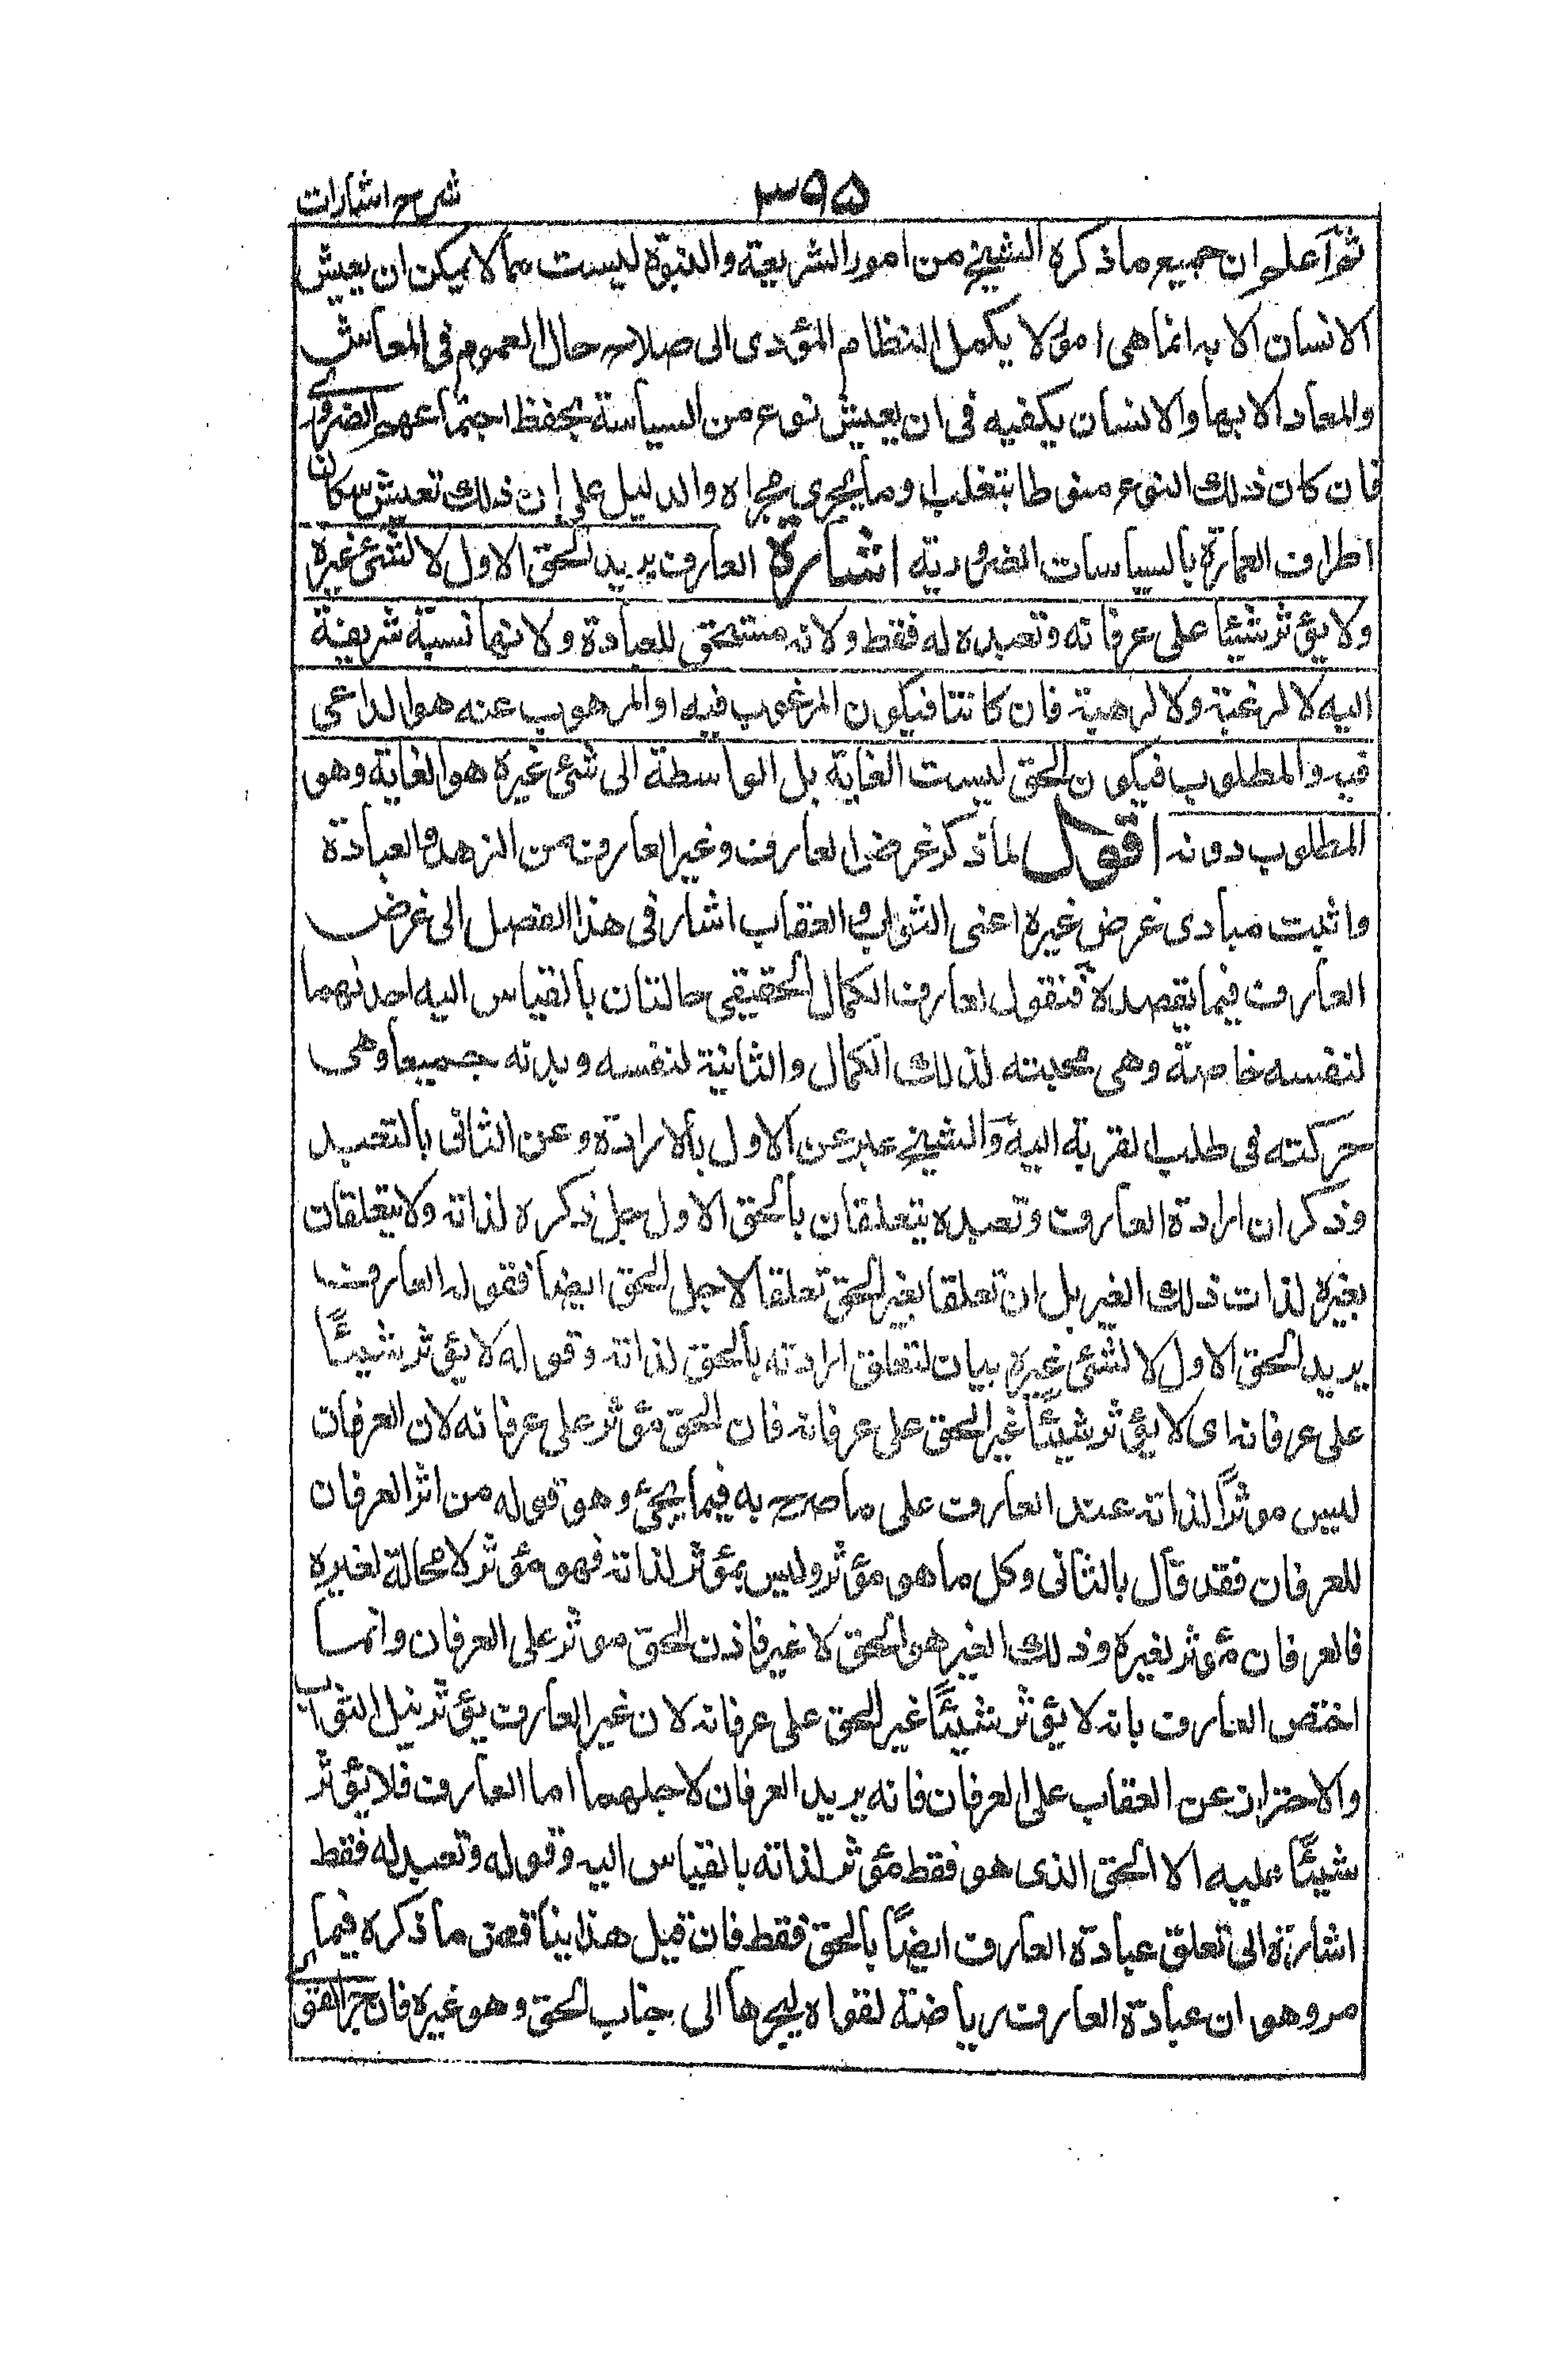 شرح اشارات
۳۹۵
ثم اعلم ان جميع ما ذكره الشيخ من امور الشريعة والنبوة ليست مما لا يمكن ان يعيش
الانسان الا به انما هى امور لا يكمل النظام المؤدى الى صلاح حال العموم فى المعاش
والمعاد الا بها والانسان يكفيه فى ان يعيش نوع من السياسة يحفظ اجتماعهم الضرورى
فان كان ذلك النوع منوطا بتغلب او ما يجرى مجراه والدليل على ان ذلك تعيش سكان
اطراف العمارة بالسياسات الضرورية اشارة العارف يريد الحق الاول لا لشئ غيره
ولا يؤثر شيئا على عرفانه وتعبده له فقط ولانه مستحق للعبادة ولانها نسبة شريفة
اليه لا لرغبة ولا لرهبة فان كانتا فيكون المرغوب فيه او المرهوب عنه هو الداعى
فيه والمطلوب فيكون الحق ليست الغاية بل الواسطة الى شئ غيره هو الغاية وهو
المطلوب دونه اقول لما ذكر غرض العارف وغير العارف من الزهد والعبادة
واثبت مبادى غرض غيره اعنى الثواب والعقاب اشار فى هذا الفصل الى غرض
العارف فيما يقصده فنقول لعارف الكمال الحقيقى حالتان بالقياس اليه احدٰهما
لنفسه خاصة وهى محبته لذلك الكمال والثانية لنفسه وبدنه جميعا وهى
حركته فى طلب القربة اليه والشيخ عبر عن الاول بالارادة وعن الثانى بالتعبد
وذكر ان ارادة العارف وتعبده يتعلقان بالحق الاول جل ذكره لذاته ولا يتعلقان
بغيره لذات ذلك الغير بل ان تعلقا بغير الحق تعلقا لاجل الحق ايضا فقوله العارف
يريد الحق الاول لا لشئ غيره بيان لتعلق ارادته بالحق لذاته وقوله لا يؤثر شيئًا
على عرفانه اى لا يؤثر شيئًا غير الحق على عرفانه فان الحق مؤثر على عرفانه لان العرفان
ليس موثرًا لذاته عند العارف على ما صرح به فيما يجئ وهو قوله من اثر العرفان
للعرفان فقد قال بالثانى وكل ما هو مؤثر وليس بمؤثر لذاته فهو مؤثر لا محالة لغيره
فالعرفان مؤثر لغيره وذلك الغير هو الحق لا غير فاذن الحق موثر على العرفان وانما
اختص العارف بانه لا يؤثر شيئًا غير الحق على عرفانه لان غير العارف يؤثر نيل الثواب
والاحتراز عن العقاب على العرفان فانه يريد العرفان لاجلهما اما العارف فلا يؤثر
شيئًا عليه الا الحق الذى هو فقط مؤثر لذاته بالقياس اليه وقوله وتعبد له فقط
اشارة الى تعلق عبادة العارف ايضًا بالحق فقط فان قيل هذا يناقض ما ذكره فيما
مر وهو ان عبادة العارف رياضة لقواه ليجرها الى جناب الحق وهو غيره فان جر القوى